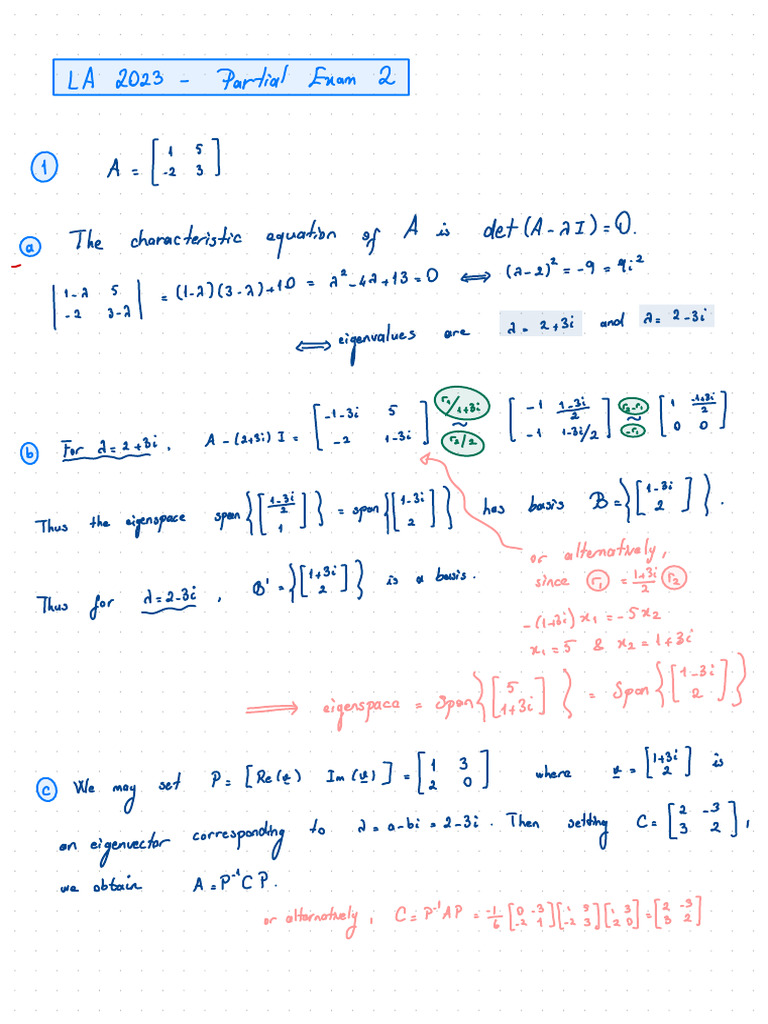 LA 2023 - Partial Exam 2
① A = [1 5; -2 3]
ⓐ The characteristic equation of A is det(A-λI)=0.
|1-λ 5; -2 3-λ| = (1-λ)(3-λ)+10 = λ²-4λ+13=0 ⟺ (λ-2)² = -9 = 9i²
⟺ eigenvalues are λ = 2+3i and λ = 2-3i
ⓑ For λ=2+3i, A-(2+3i)I = [-1-3i 5; -2 1-3i] r₁/1+3i ~ r₂/2 [-1 1-3i/2; -1 1-3i/2] r₂-r₁ ~ -r₁ [1 -1+3i/2; 0 0]
Thus the eigenspace span{[1-3i/2; 1]} = span{[1-3i; 2]} has basis B={[1-3i; 2]}.
or alternatively,
since r₁ = 1+3i/2 r₂
Thus for λ=2-3i, B'={[1+3i; 2]} is a basis.
-(1+3i)x₁ = -5x₂
x₁=5 & x₂=1+3i
⟹ eigenspace = Span{[5; 1+3i]} = Span{[1-3i; 2]}
ⓒ We may set P=[Re(x) Im(x)]=[1 3; 2 0] where x=[1+3i; 2] is
an eigenvector corresponding to λ=a-bi=2-3i. Then setting C=[2 -3; 3 2],
we obtain A=P⁻¹CP.
or alternatively, C=P⁻¹AP = -1/6 [0 -3; -2 1][1 5; -2 3][1 3; 2 0]=[2 -3; 3 2]